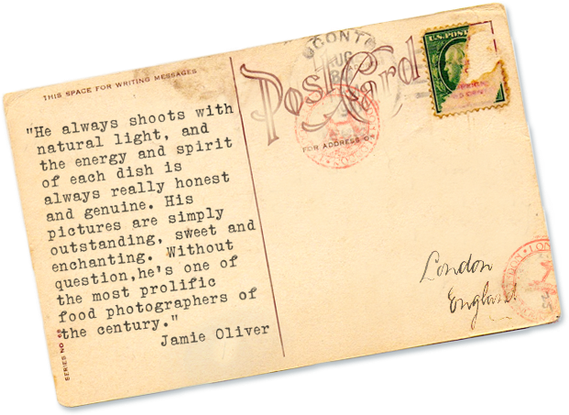 THIS SPACE FOR WRITING MESSAGES
"He always shoots with
natural light, and
the energy and spirit
of each dish is
always really honest
and genuine. His
pictures are simply
outstanding, sweet and
enchanting. Without
question,he's one of
the most prolific
food photographers of
the century."
Jamie Oliver
SERIES NO
Post Card
FOR ADDRESS ON
AUG
U.S. POST
London
England
LONDON